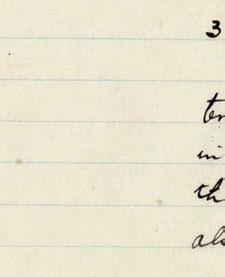 3
ten
in
th
als